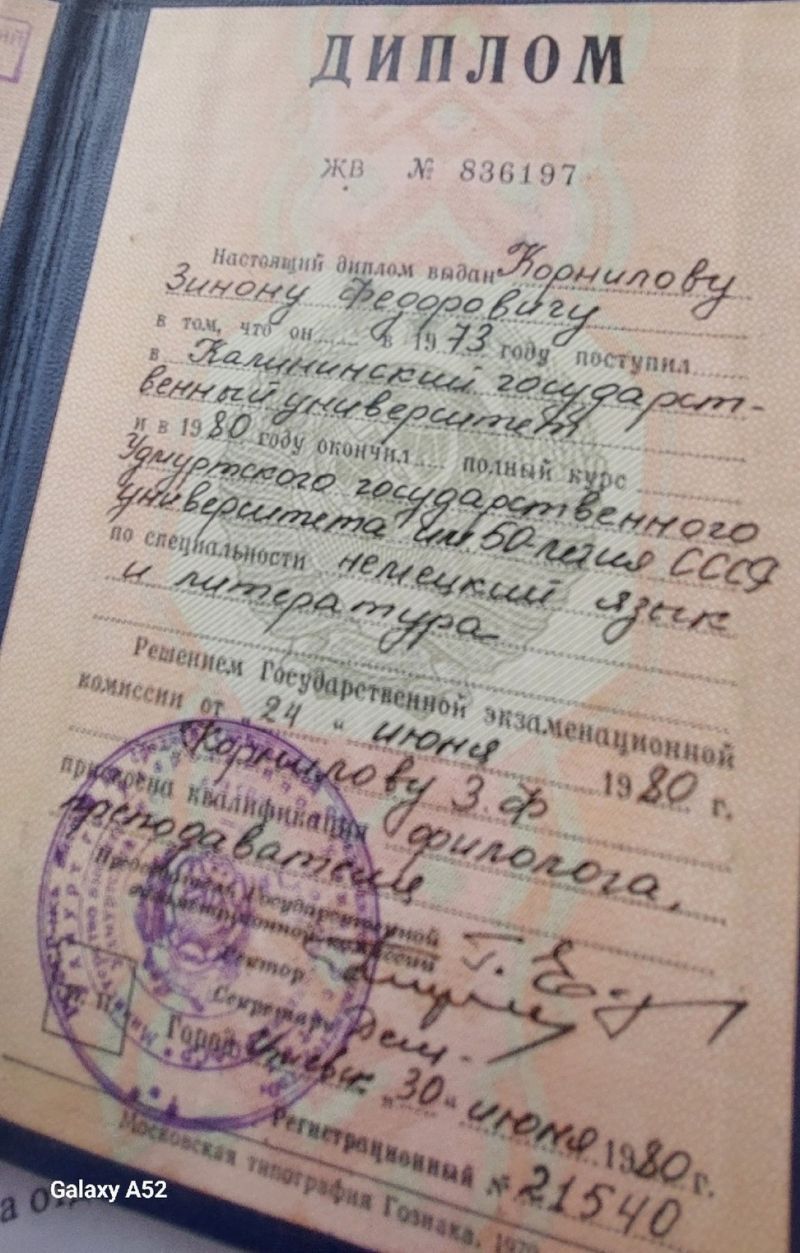 ДИПЛОМ
ЖВ № 836197
Настоящий диплом выдан Корнилову
Зинону Федоровичу
в том, что он в 1973 году поступил
в Калининский государст-
венный университет
и в 1980 году окончил полный курс
Удмуртского государственного
университета им 50-летия СССР
по специальности немецкий язык
и литература
Решением Государственной экзаменационной
комиссии от "24" июня 1980 г.
Корнилову З.Ф
присвоена квалификация филолога,
преподавателя
Председатель Государственной
экзаменационной комиссии
Ректор
Секретарь
М. П.
Город Ижевск "30" июня 1980 г.
Регистрационный № 21540
Московская типография Гознака.
Galaxy A52